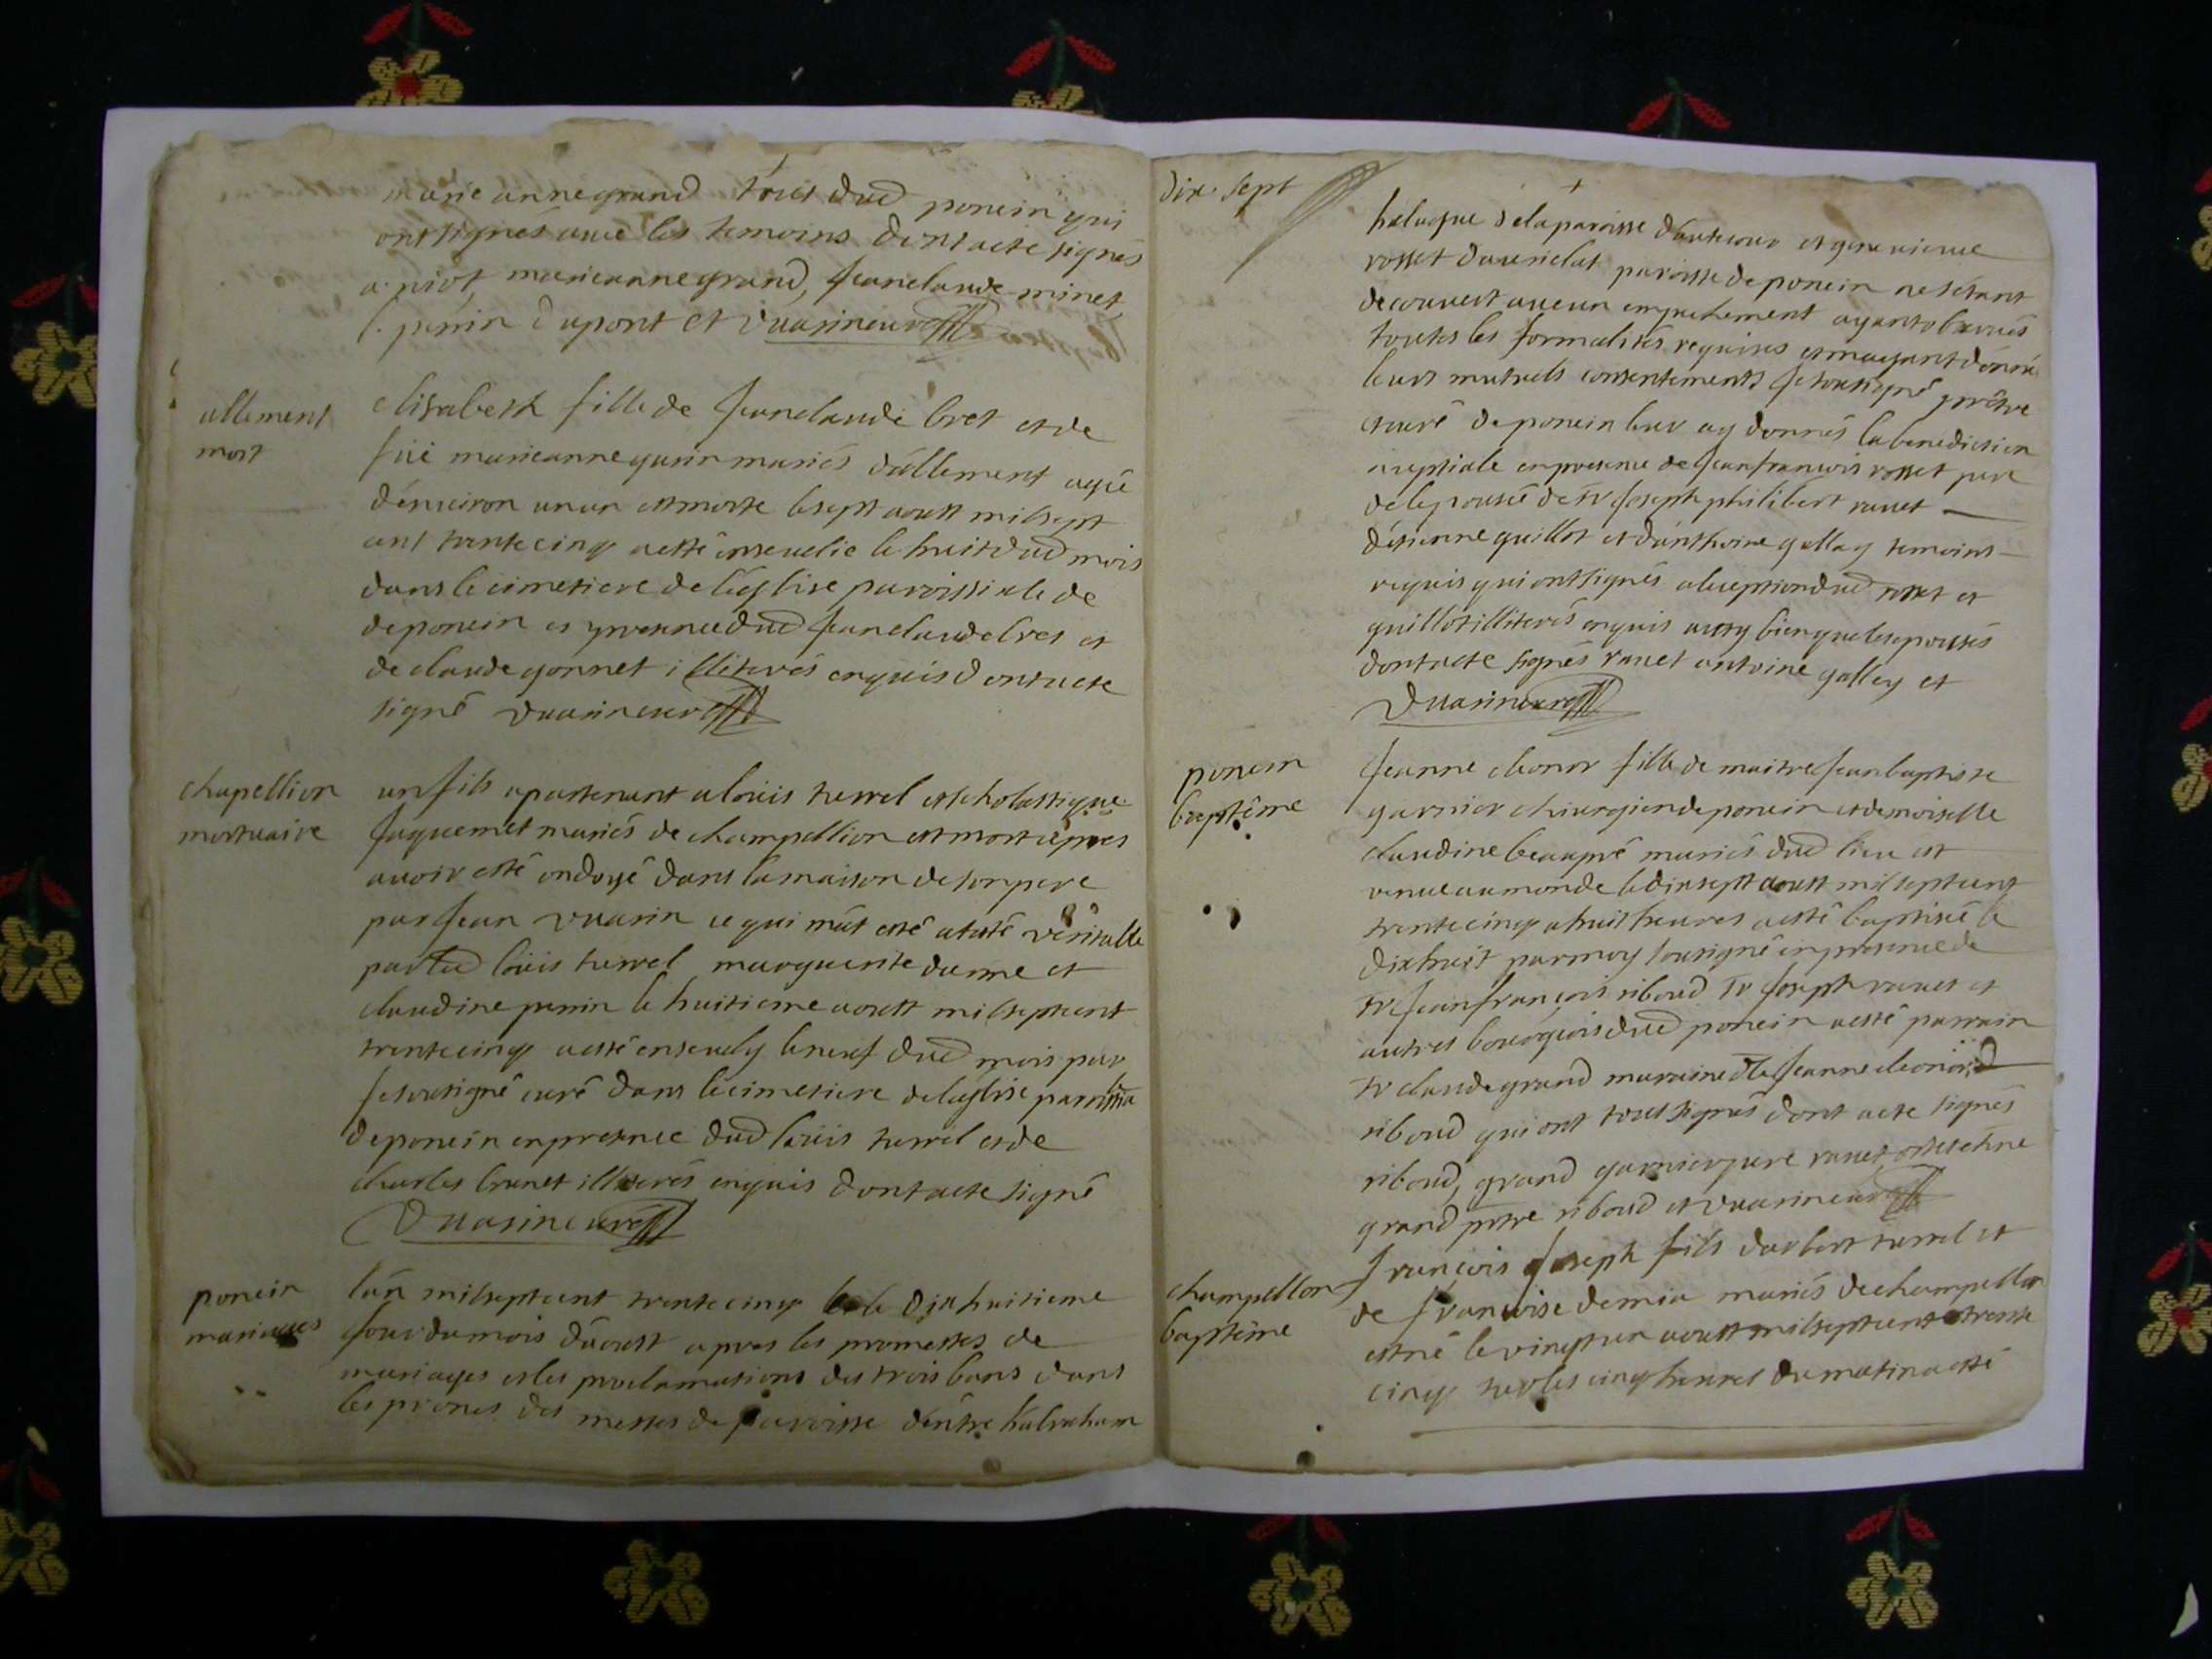 marie anne grand tous dud poncin qui
ont signés avec les temoins dont acte signés
a. niot marieanne grand, jeanclaude minet,
perrin dupont et vuarin curé
allement
mort
elisabeth fille de jeanclaude bret et de
füe marieanne guerin mariés d'allement agée
d'environ un an est morte le sept aoust mil sept
cent trente cinq a esté ensevelie le huit dud mois
dans le cimetiere de l'église paroissiale de
de poncin en presence dud jeanclaude bret et
de claude gonnet illiterés enquis dont acte
signé vuarin curé
chapellion
mortuaire
un fils apartenant a loüis terrel et scholastique
jaquemet mariés de champellion est mort apres
avoir esté ondoyé dans la maison de son pere
par jean vuarin ce qui m'at esté atesté véritable
par led loüis terrel marguerite damme et
claudine perrin le huitieme aoust mil sept cent
trente cinq a esté ensevely le neuf dud mois par
je sousigné curé dans le cimetiere de l'église
de poncin en presence dud loüis terrel et de
charles brunet illiterés enquis dont acte signé
vuarin curé
poncin
mariages
l'an mil sept cent trente cinq le dixhuitieme
jour du mois d'aoust apres les promesses de
mariages et les proclamations des trois bans dans
les prones des messes de paroisse d'entre habraham
dix sept
de la paroisse et genevieve
rosset paroisse de poncin ne s'etant
decouvert aucun empechement ayant observés
toutes les formalités requises et m'ayant donné
leurs mutuels consentements je sousigné prêtre
et curé de poncin leur ay donnés la benediction
nuptiale en presence de jean francois rosset pere
de l'epousée de sr joseph philibert ravet
d'etienne guillot et d'anthoine gallay temoins
requis qui ont signés a l'exception dud rosset et
guillot illiterés enquis aussy bien que les epousés
dont acte signés ravet antoine galley et
vuarin curé
poncin
baptême
jeanne eleonor fille de maitre jean baptiste
garnier chirurgien de poncin et demoiselle
claudine beaupré mariés dud lieu est
venue au monde le dixsept aoust mil sept cent
trente cinq a huit heures a esté baptisée le
dixhuit par moy sousigné en presence de
sr jean françois riboud sr joseph ravet et
autres bourgeois dud poncin a esté parrain
sr claude grand maraine dlle jeanne eleonor
riboud qui ont tous signés dont acte signés
riboud, grand garnier pere ravet
grand prtre riboud et vuarin curé
champellon
baptême
françois joseph fils terrel et
de francoise demia mariés de champellon
est né le vingt un aoust mil sept cent trente
cinq sur les cinq heures du matin a esté